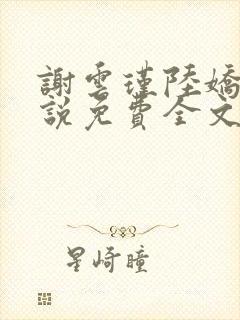 謝雲瑾陸嬌
說免費全文
星崎瞳